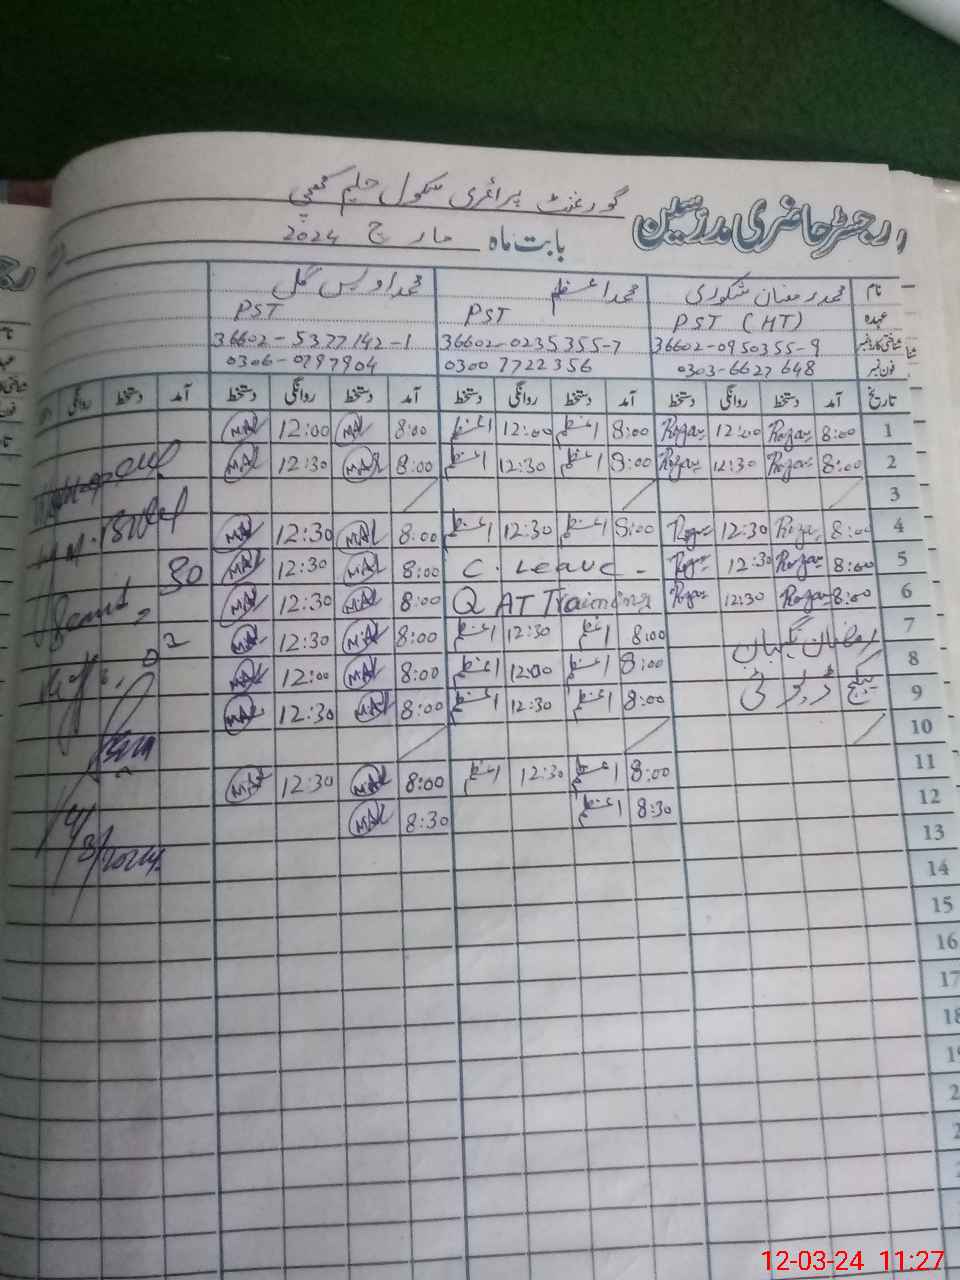 رجسٹر حاضری مدرسین
گورنمنٹ پرائمری سکول حلیم کھچی
بابت ماہ مارچ 2024
نام محمد رمضان شکوری محمد اعظم محمد اویس گل
عہدہ PST (HT) PST PST
شناختی کارڈ نمبر 36602-0950355-9 36602-0235355-7 36602-5377142-1
فون نمبر 0303-6627648 0300 7722356 0306-0797904
تاریخ آمد دستخط روانگی دستخط آمد دستخط روانگی دستخط آمد دستخط روانگی دستخط آمد دستخط روانگی
1 8:00 12:00 8:00 اعظم 12:00 اعظم 8:00 MAL 12:00 MAL
2 8:00 12:30 8:00 اعظم 12:30 اعظم 8:00 MAL 12:30 MAL
3
4 8:00 12:30 8:00 اعظم 12:30 اعظم 8:00 MAL 12:30 MAL
5 8:00 12:30 C. Leave - 8:00 MAL 12:30 MAL
6 8:00 12:30 QAT Training 8:00 MAL 12:30 MAL
7 رمضان نگہبان 8:00 اعظم 12:30 اعظم 8:00 MAL 12:30 MAL
8 پیکج ڈیوٹی 8:00 اعظم 12:00 اعظم 8:00 MAL 12:00 MAL
9 8:00 اعظم 12:30 اعظم 8:00 MAL 12:30 MAL
10
11 8:00 اعظم 12:30 اعظم 8:00 MAL 12:30 MAL
12 8:30 اعظم 8:30 MAL
13
14
15
16
17
18
30
02
12-03-24 11:27